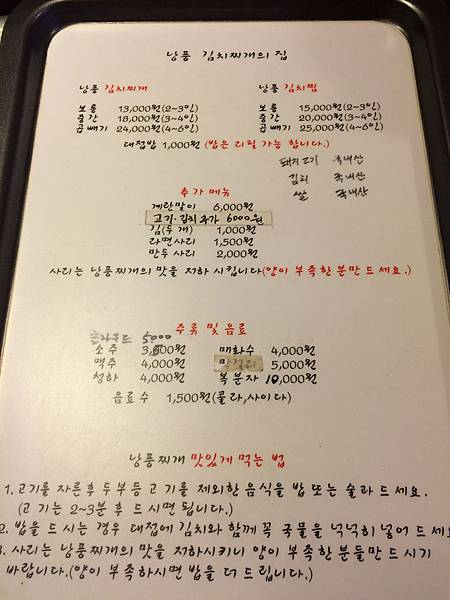 낭풍 김치찌개의 집
낭풍 김치찌개
보통 13,000원(2~3인)
중간 18,000원(3~4인)
곱빼기 24,000원(4~6인)
낭풍 김치찜
보통 15,000원(2~3인)
중간 20,000원(3~4인)
곱빼기 25,000원(4~6인)
대접밥 1,000원 (밥은 리필 가능 합니다.)
돼지고기 국내산
김치 국내산
쌀 국내산
추가 메뉴
계란말이 6,000원
고기·김치 추가 6000원
김(두개) 1,000원
라면사리 1,500원
만두사리 2,000원
사리는 낭풍찌개의 맛을 저하 시킵니다(양이 부족한 분만 드세요.)
주류 및 음료
5000
소주
맥주 4,000원
청하 4,000원
매화수 4,000원
5,000원
복분자 10,000원
음료수 1,500원(콜라,사이다)
낭풍찌개 맛있게 먹는 법
1.고기를 자른후 두부등 고기를 제외한 음식을 밥 또는 술라 드세요.
(고기는 2~3분 후 드시면 됩니다.)
2. 밥을 드시는 경우 대접에 김치와 함께 꼭 국물을 넉넉히 넣어 드세
3. 사리는 낭풍찌개의 맛을 저하시키니 양이 부족한 분들만 드시기
바랍니다.(양이 부족하시면 밥을 더 드립니다.)